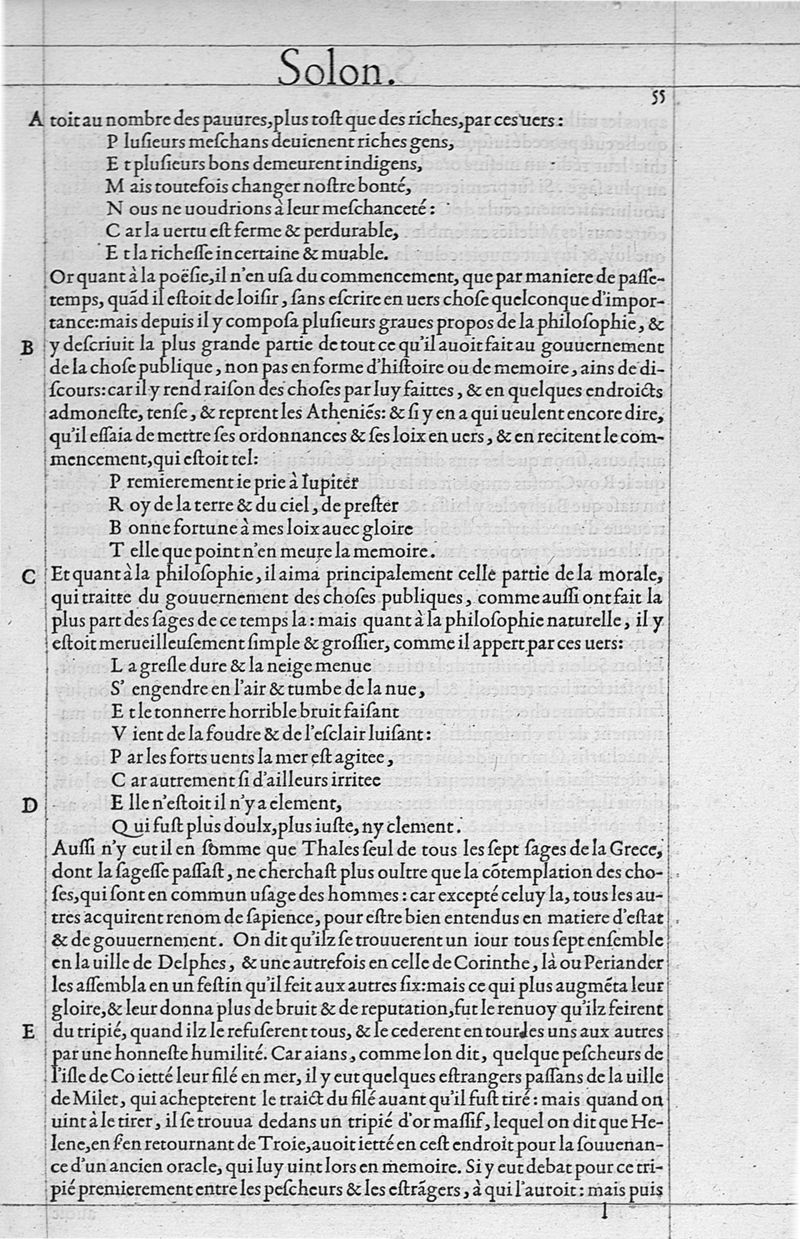 Solon.
55
A toit au nombre des pauures, plus tost que des riches, par ces uers:
P lusieurs meschans deuienent riches gens,
E t plusieurs bons demeurent indigens,
M ais toutefois changer nostre bonté,
N ous ne uoudrions à leur meschanceté:
C ar la uertu est ferme & perdurable,
E t la richesse incertaine & muable.
Or quant à la poësie, il n'en usa du commencement, que par maniere de passe-
temps, quãd il estoit de loisir, sans escrire en uers chose quelconque d'impor-
tance: mais depuis il y composa plusieurs graues propos de la philosophie, &
B y descriuit la plus grande partie de tout ce qu'il auoit fait au gouuernement
de la chose publique, non pas en forme d'histoire ou de memoire, ains de di-
scours: car il y rend raison des choses par luy faittes, & en quelques endroicts
admoneste, tense, & reprent les Atheniẽs: & si y en a qui ueulent encore dire,
qu'il essaia de mettre ses ordonnances & ses loix en uers, & en recitent le com-
mencement, qui estoit tel:
P remierement ie prie à Iupiter
R oy de la terre & du ciel, de prester
B onne fortune à mes loix auec gloire
T elle que point n'en meure la memoire.
C Et quant à la philosophie, il aima principalement celle partie de la morale,
qui traitte du gouuernement des choses publiques, comme aussi ont fait la
plus part des sages de ce temps la: mais quant à la philosophie naturelle, il y
estoit merueilleusement simple & grossier, comme il appert par ces uers:
L a gresle dure & la neige menue
S' engendre en l'air & tumbe de la nue,
E t le tonnerre horrible bruit faisant
V ient de la foudre & de l'esclair luisant:
P ar les forts uents la mer est agitee,
C ar autrement si d'ailleurs irritee
D E lle n'estoit il n'y a element,
Q ui fust plus doulx, plus iuste, ny clement.
Aussi n'y eut il en somme que Thales seul de tous les sept sages de la Grece,
dont la sagesse passast, ne cherchast plus oultre que la cõtemplation des cho-
ses, qui sont en commun usage des hommes: car excepté celuy la, tous les au-
tres acquirent renom de sapience, pour estre bien entendus en matiere d'estat
& de gouuernement. On dit qu'ilz se trouuerent un iour tous sept ensemble
en la uille de Delphes, & une autrefois en celle de Corinthe, là ou Periander
les assembla en un festin qu'il feit aux autres six: mais ce qui plus augmẽta leur
gloire, & leur donna plus de bruit & de reputation, fut le renuoy qu'ilz feirent
E du tripié, quand ilz le refuserent tous, & le cederent en tour les uns aux autres
par une honneste humilité. Car aians, comme lon dit, quelque pescheurs de
l'isle de Co ietté leur filé en mer, il y eut quelques estrangers passans de la uille
de Milet, qui achepterent le traict du filé auant qu'il fust tiré: mais quand on
uint à le tirer, il se trouua dedans un tripié d'or massif, lequel on dit que He-
lene, en s'en retournant de Troie, auoit ietté en cest endroit pour la souuenan-
ce d'un ancien oracle, qui luy uint lors en memoire. Si y eut debat pour ce tri-
pié premierement entre les pescheurs & les estrãgers, à qui l'auroit: mais puis
l